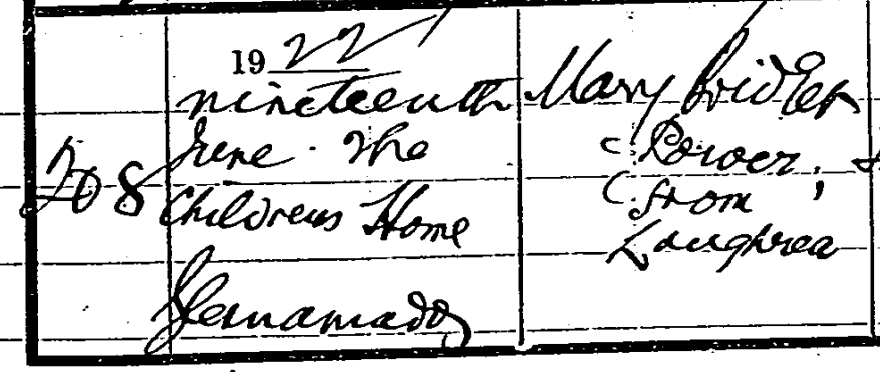 208
1922
nineteenth
June. The
Childrens Home
Glennamaddy
Mary Bridget
(Power,
(from
Loughrea